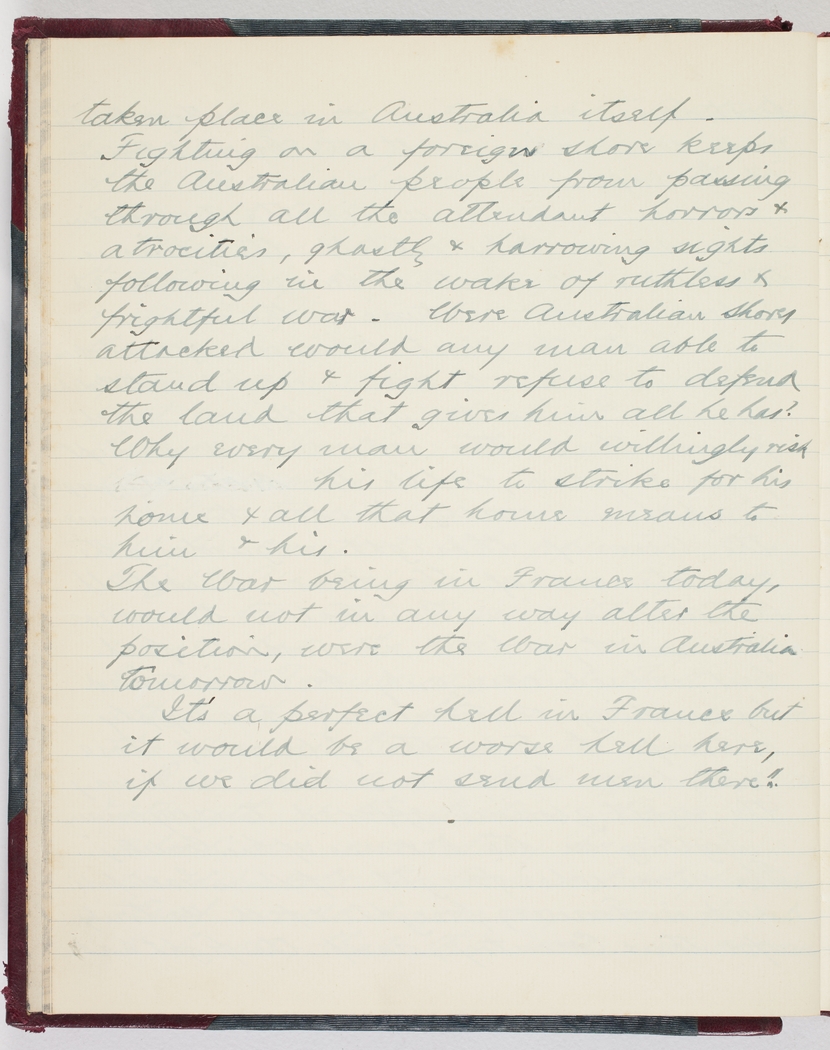 taken place in Australia itself.
Fighting on a foreign shore keeps
the Australian people from passing
through all the attendant horrors &
atrocities, ghastly & harrowing sights
following in the wake of ruthless &
frightful war. Were Australian shores
attacked would any man able to
stand up & fight refuse to defend
the land that gives him all he has?
Why every man would willingly risk
his life to strike for his
home & all that home means to
him & his.
The War being in France today,
would not in any way alter the
position, were the War in Australia
tomorrow.
It's a perfect hell in France but
it would be a worse hell here,
if we did not send men there!!